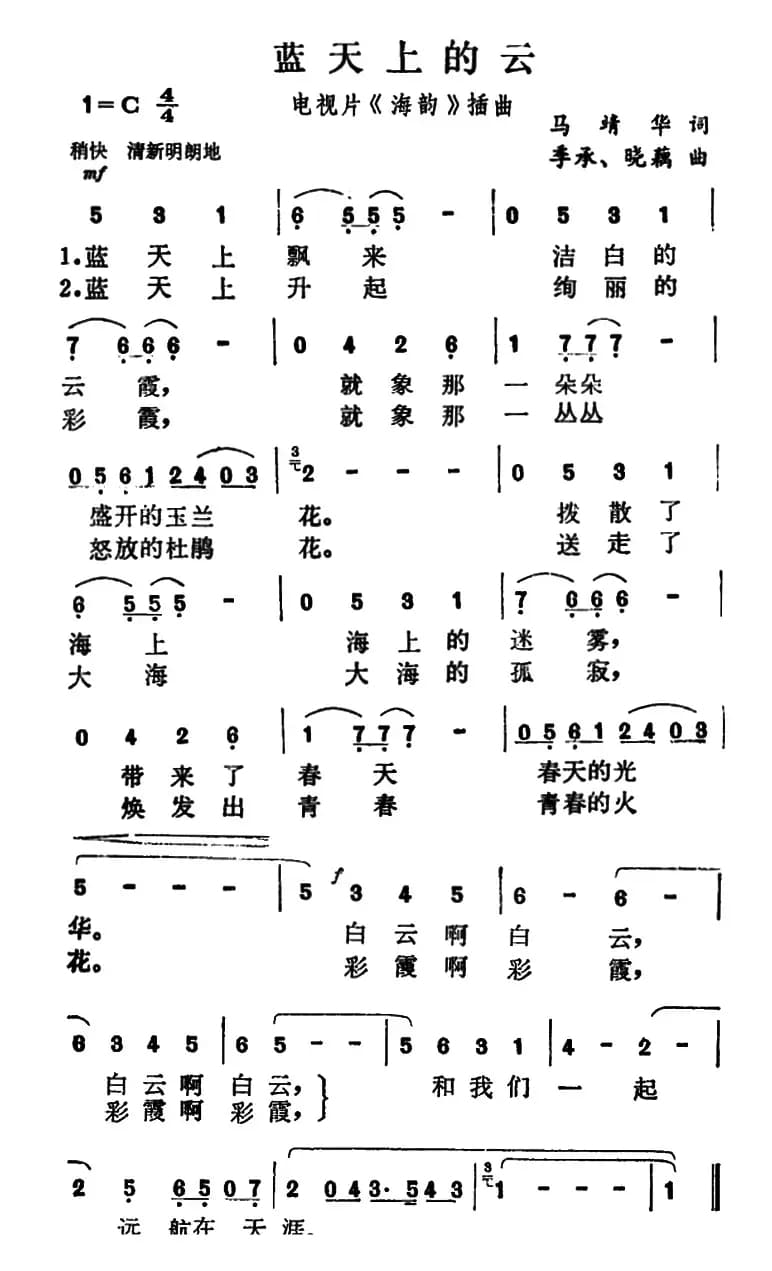 蓝天上的云
1=C 4/4
电视片《海韵》插曲
马靖华 词
季承、晓藕 曲
稍快 清新明朗地
mf
5 3 1 | 6 5 5 5 - | 0 5 3 1 |
1.蓝天上飘来 洁白的
2.蓝天上升起 绚丽的
7 6 6 6 - | 0 4 2 6 | 1 7 7 7 - |
云霞, 就象那一朵朵
彩霞, 就象那一丛丛
0 5 6 1 2 4 0 3 | 3 2 - - - | 0 5 3 1 |
盛开的玉兰 花。 拨散了
怒放的杜鹃 花。 送走了
6 5 5 5 - | 0 5 3 1 | 7 6 6 6 - |
海上 海上的迷雾,
大海 大海的孤寂,
0 4 2 6 | 1 7 7 7 - | 0 5 6 1 2 4 0 3 |
带来了春天 春天的光
焕发出青春 青春的火
5 - - - | 5 f 3 4 5 | 6 - 6 - |
华。 白云啊白云,
花。 彩霞啊彩霞,
6 3 4 5 | 6 5 - - | 5 6 3 1 | 4 - 2 - |
白云啊白云,} 和我们一起
彩霞啊彩霞,
2 5 6 5 0 7 | 2 0 4 3· 5 4 3 | 3 1 - - - | 1 ‖
远航在天涯。